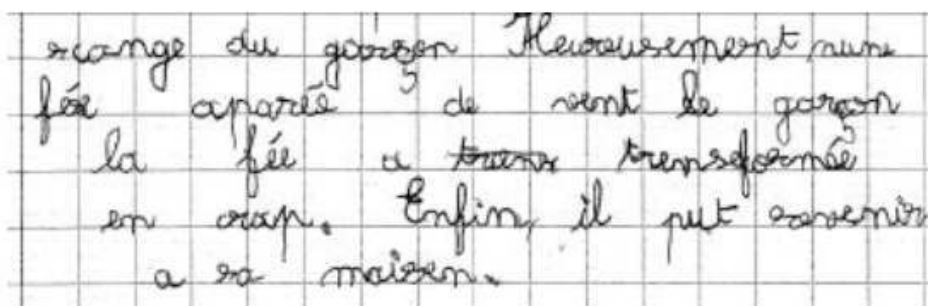 du garçon Heureusement, une
fée aparéé de vent le garçon
la fée a trans trensformée
en crap. Enfin, il put revenir
a sa maison.